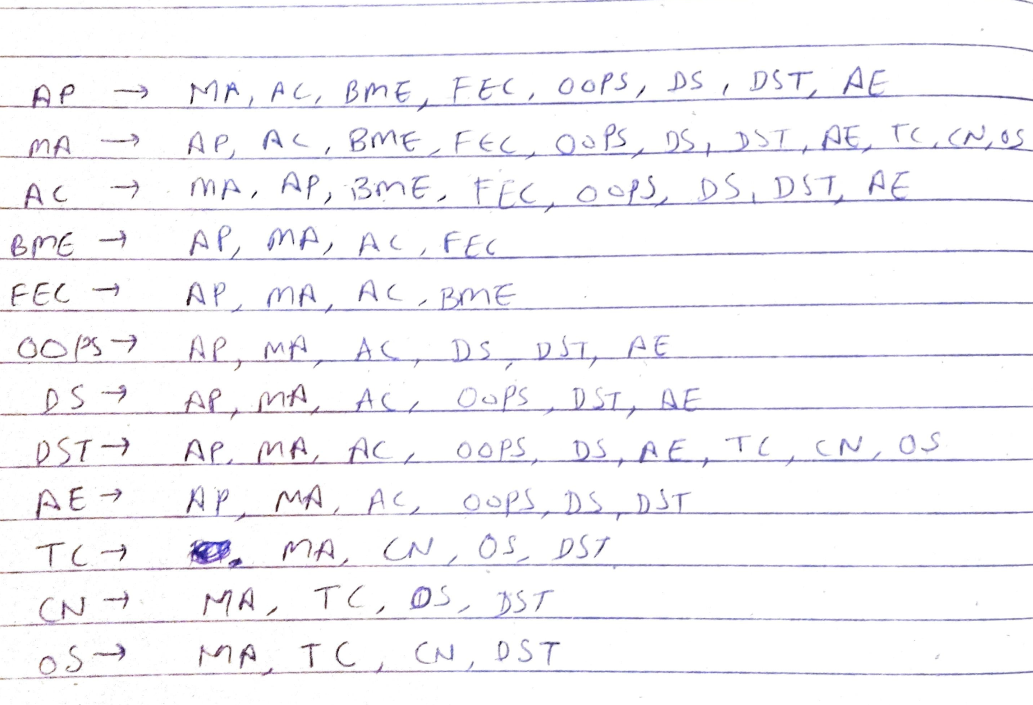 AP → MA, AC, BME, FEC, OOPS, DS, DST, AE
MA → AP, AC, BME, FEC, OOPS, DS, DST, AE, TC, CN, OS
AC → MA, AP, BME, FEC, OOPS, DS, DST, AE
BME → AP, MA, AC, FEC
FEC → AP, MA, AC, BME
OOPS → AP, MA, AC, DS, DST, AE
DS → AP, MA, AC, OOPS, DST, AE
DST → AP, MA, AC, OOPS, DS, AE, TC, CN, OS
AE → AP, MA, AC, OOPS, DS, DST
TC → , MA, CN, OS, DST
CN → MA, TC, OS, DST
OS → MA, TC, CN, DST